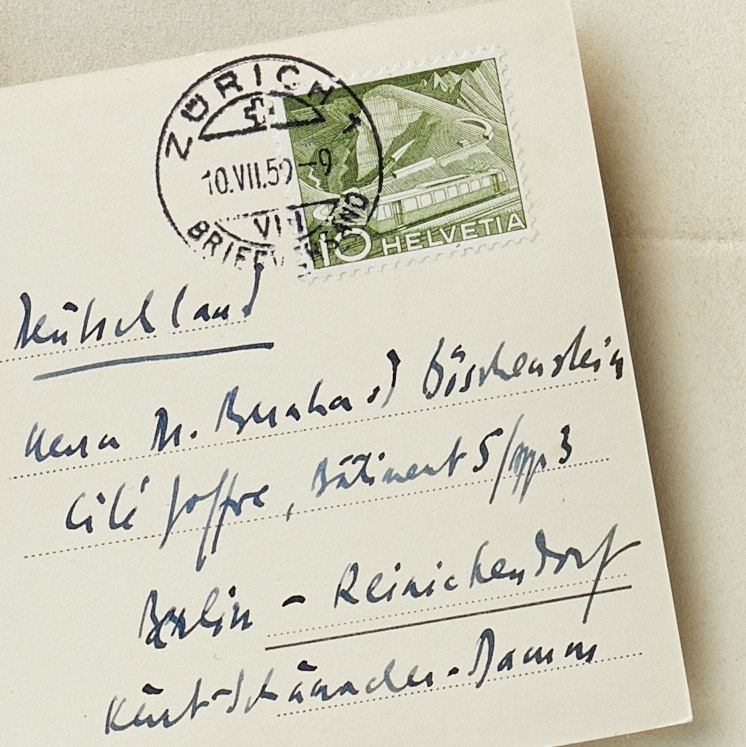 ZÜRICH 1
10.VII.59-9
VIII
BRIEFVERSAND
10 HELVETIA
Deutschland
Herrn Dr. Bernhard Böschenstein
Cité Joffre, Bâtiment 5/App 3
Berlin - Reinickendorf
Kurt-Schumacher-Damm